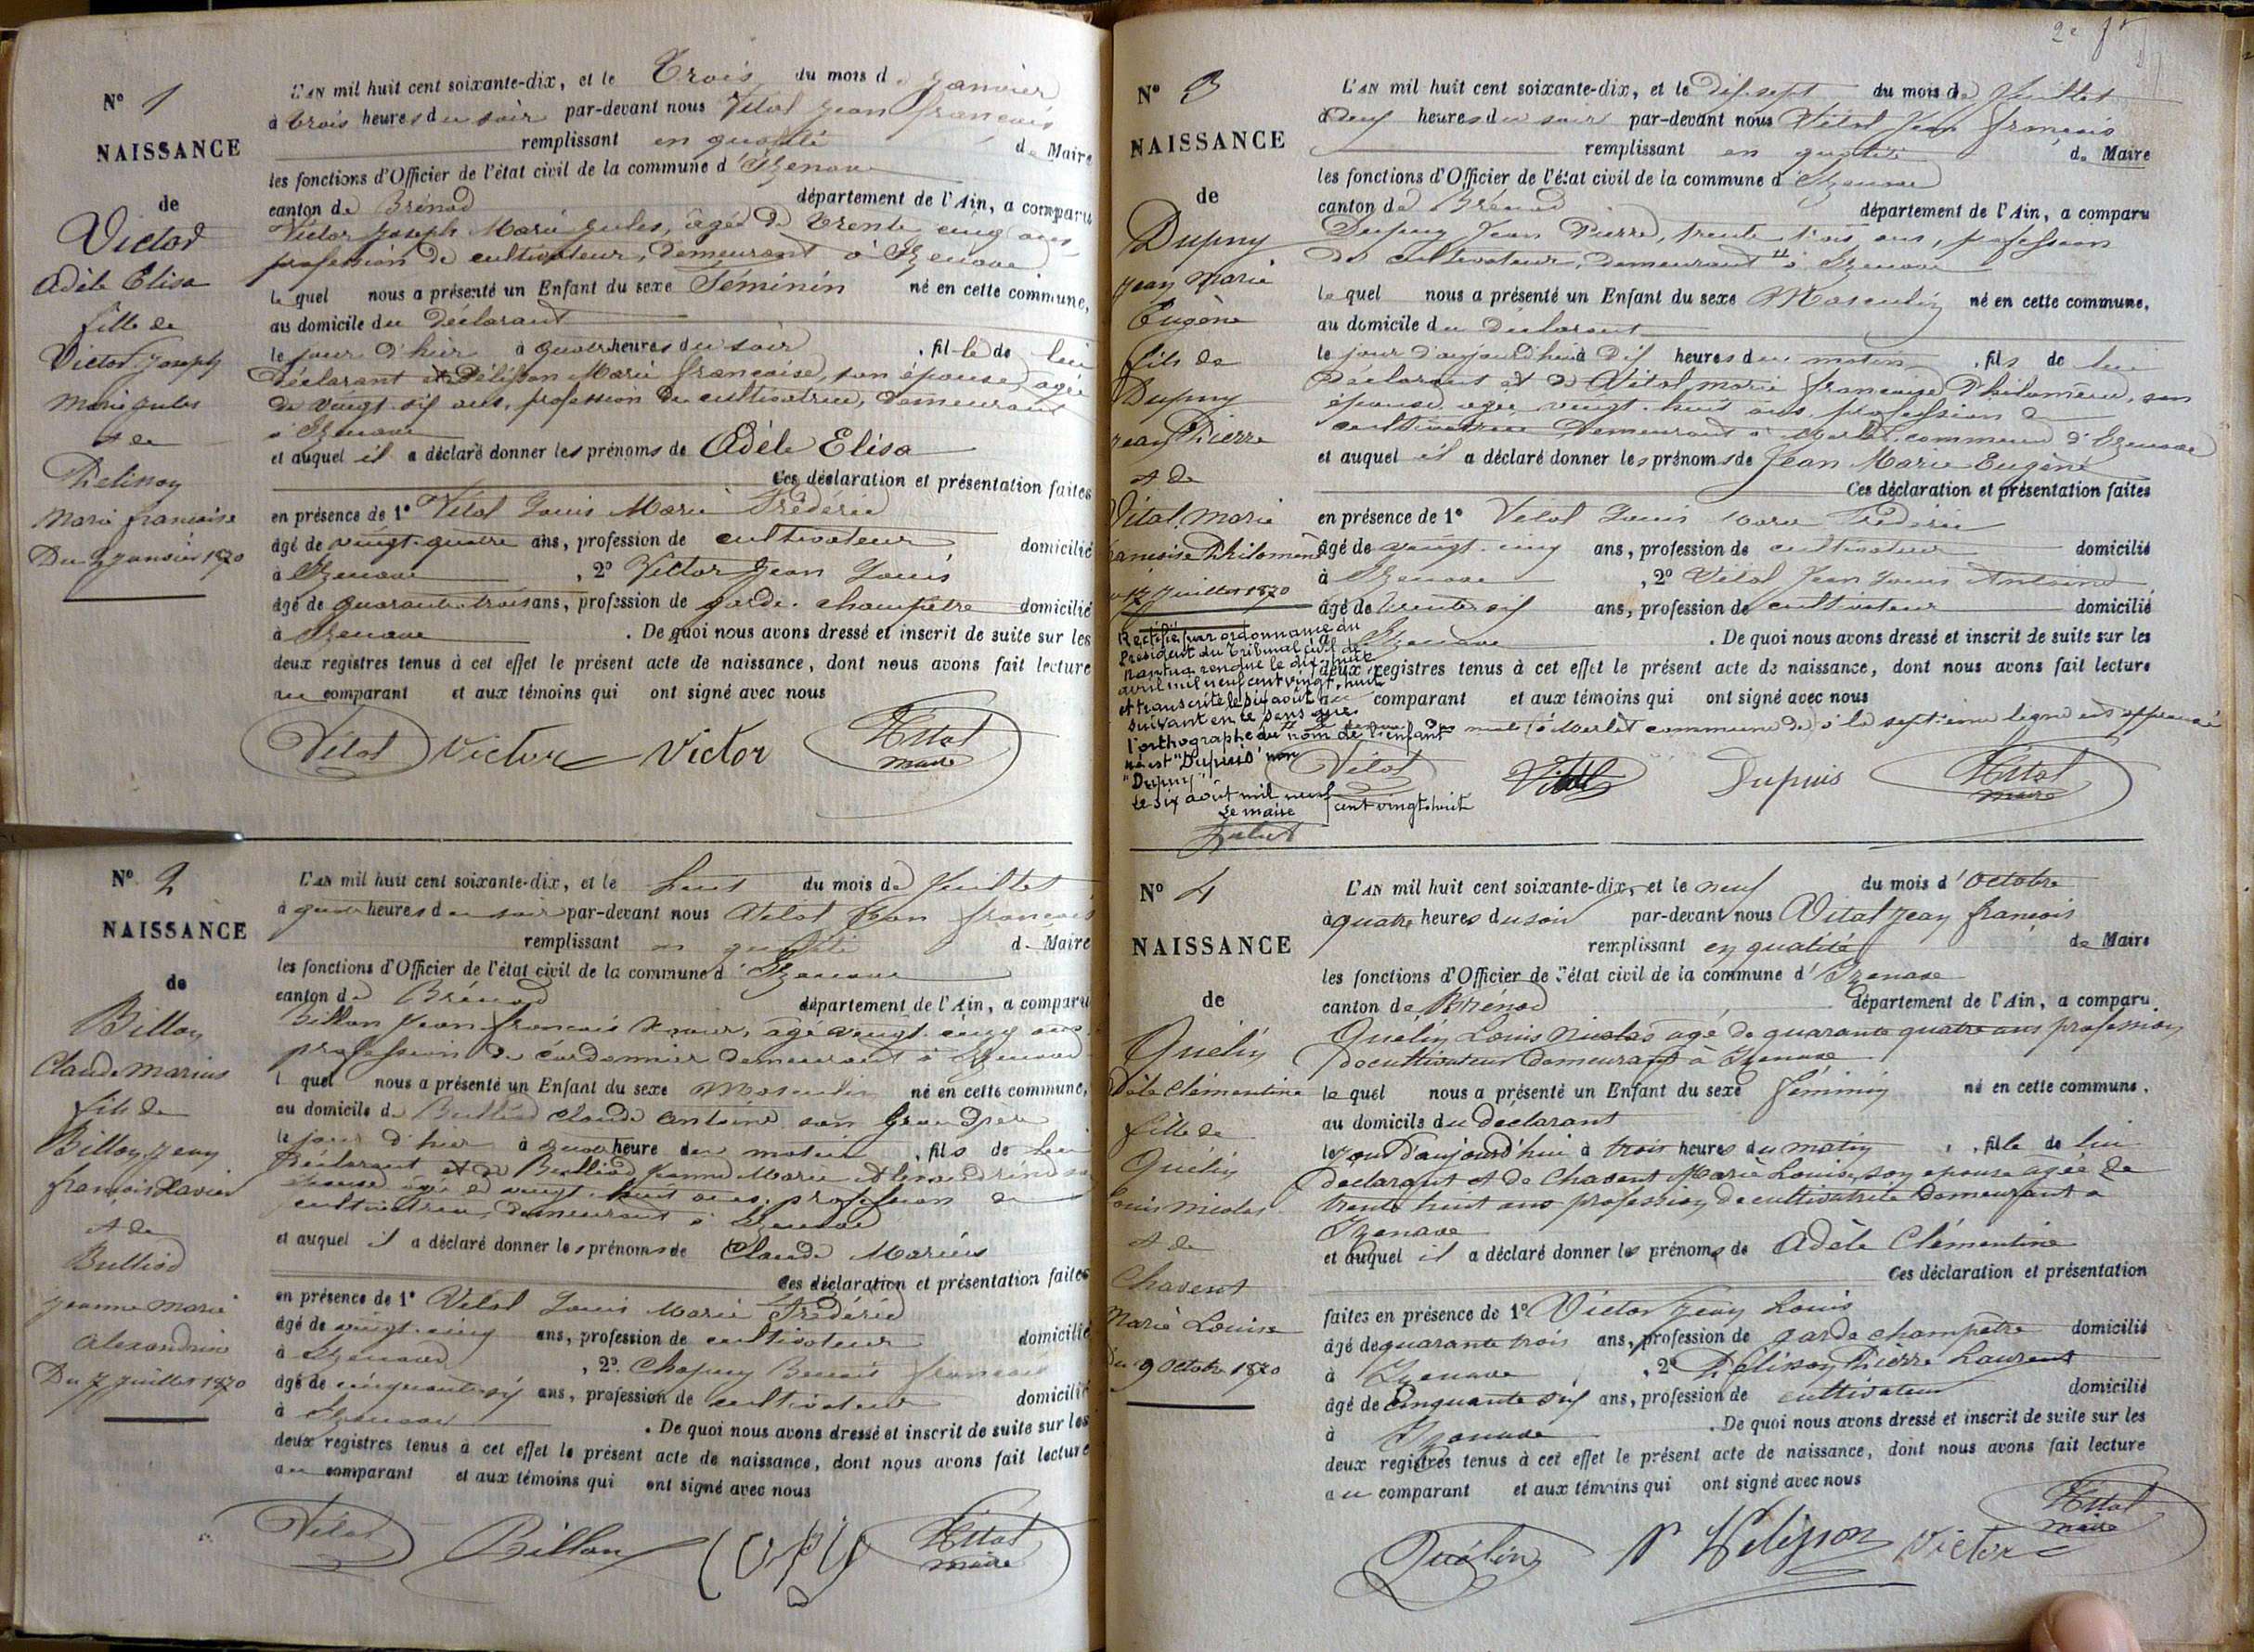 N° 1
NAISSANCE
de
Victor
Adèle Elisa
fille de
Victor Joseph
Marie Jules
et de
Pelisson
Marie françoise
Du 2 Janvier 1870
L'AN mil huit cent soixante-dix, et le Trois du mois de Janvier
à trois heures du soir par-devant nous Vital Jean françois
remplissant en qualité de Maire
les fonctions d'Officier de l'état civil de la commune d'Izenave
canton de Brénod département de l'Ain, a comparu
Victor Joseph Marie Jules, âgé de trente cinq ans
profession de cultivateur, demeurant à Izenave
le quel nous a présenté un Enfant du sexe Féminin né en cette commune,
au domicile du déclarant
le jour d'hier à quatre heures du soir, fille de lui
déclarant et de Pélisson Marie françoise, son épouse, agée
de vingt-six ans, profession de cultivatrice, demeurant
à Izenave
et auquel il a déclaré donner les prénoms de Adèle Elisa
Ces déclaration et présentation faites
en présence de 1° Vital Louis Marie Frédéric
âgé de vingt-quatre ans, profession de cultivateur domicilié
à Izenave, 2° Victor Jean Louis
âgé de quarante-trois ans, profession de garde-champêtre domicilié
à Izenave. De quoi nous avons dressé et inscrit de suite sur les
deux registres tenus à cet effet le présent acte de naissance, dont nous avons fait lecture
au comparant et aux témoins qui ont signé avec nous
Vital Victor Victor Vital
maire
N° 2
NAISSANCE
de
Billon
Claude Marius
fils de
Billon Jean
françois Xavier
et de
Bulliod
Jeanne Marie
Alexandrine
Du 7 Juillet 1870
L'AN mil huit cent soixante-dix, et le huit du mois de Juillet
à quatre heures du soir par-devant nous Vital Jean françois
remplissant en qualité de Maire
les fonctions d'Officier de l'état civil de la commune d'Izenave
canton de Brénod département de l'Ain, a comparu
Billon Jean françois Xavier, agé vingt-cinq ans
profession de cordonnier demeurant à Izenave
l quel nous a présenté un Enfant du sexe Masculin né en cette commune,
au domicile de Bulliod Claude Antoine son Grand père
le jour d'hier à quatre heure du matin, fils de lui
déclarant et de Bulliod Jeanne Marie Alexandrine son
épouse agée de vingt-huit ans, profession de
cultivatrice, demeurant à Izenave
et auquel il a déclaré donner les prénoms de Claude Marius
Ces déclaration et présentation faites
en présence de 1° Vital Louis Marie Frédéric
âgé de vingt-cinq ans, profession de cultivateur domicilié
à Izenave, 2° Chapuy Benoit françois
âgé de cinquante-six ans, profession de cultivateur domicilié
à Izenave. De quoi nous avons dressé et inscrit de suite sur les
deux registres tenus à cet effet le présent acte de naissance, dont nous avons fait lecture
au comparant et aux témoins qui ont signé avec nous
Vital Billon Vital
maire
N° 3
NAISSANCE
de
Dupuy
Jean Marie
Eugène
fils de
Dupuy
Jean Pierre
et de
Vital Marie
françoise Philomène
17 Juillet 1870
Rectifié par ordonnance du
Président du Tribunal civil de
Nantua rendue le dix-huit
avril mil neuf cent vingt-huit
et transcrite le six août
suivant en ce sens que
l'orthographe du nom de l'enfant
né est "Dupuis" non
"Dupuy"
Le six août mil neuf
cent vingt-huit
Le maire
L'AN mil huit cent soixante-dix, et le Dix-sept du mois de Juillet
à Deux heures du soir par-devant nous Vital Jean françois
remplissant en qualité de Maire
les fonctions d'Officier de l'état civil de la commune d'Izenave
canton de Brénod département de l'Ain, a comparu
Dupuy Jean Pierre, trente-trois ans, profession
de cultivateur, demeurant à Izenave
le quel nous a présenté un Enfant du sexe Masculin né en cette commune,
au domicile du déclarant
le jour d'aujourd'hui à Dix heures du matin, fils de lui
déclarant et de Vital Marie françoise Philomène, son
épouse agée vingt-huit ans, profession de
cultivatrice demeurant à Merlet commune d'Izenave
et auquel il a déclaré donner les prénoms de Jean Marie Eugène
Ces déclaration et présentation faites
en présence de 1° Vital Louis Marie Frédéric
âgé de vingt-cinq ans, profession de cultivateur domicilié
à Izenave, 2° Vital Jean Louis Antoine
âgé de trente-six ans, profession de cultivateur domicilié
à Izenave. De quoi nous avons dressé et inscrit de suite sur les
deux registres tenus à cet effet le présent acte de naissance, dont nous avons fait lecture
au comparant et aux témoins qui ont signé avec nous
à Merlet commune de à la septième ligne est approuvé
Vital Vital Dupuis Vital
maire
N° 4
NAISSANCE
de
Quélin
Adèle Clémentine
fille de
Quélin
Louis Nicolas
et de
Chavent
Marie Louise
Du 9 Octobre 1870
L'AN mil huit cent soixante-dix, et le neuf du mois d'Octobre
à quatre heures du soir par-devant nous Vital Jean françois
remplissant en qualité de Maire
les fonctions d'Officier de l'état civil de la commune d'Izenave
canton de Brénod département de l'Ain, a comparu
Quélin Louis Nicolas agé de quarante quatre ans profession
de cultivateur demeurant à Izenave
le quel nous a présenté un Enfant du sexe féminin né en cette commune,
au domicile du déclarant
le jour d'aujourd'hui à trois heures du matin, fille de lui
déclarant et de Chavent Marie Louise, son épouse agée de
trente huit ans profession de cultivatrice demeurant à
Izenave
et auquel il a déclaré donner les prénoms de Adèle Clémentine
Ces déclaration et présentation
faites en présence de 1° Victor Jean Louis
âgé de quarante trois ans, profession de garde champêtre domicilié
à Izenave, 2° Pélisson Pierre Laurent
âgé de cinquante six ans, profession de cultivateur domicilié
à Izenave. De quoi nous avons dressé et inscrit de suite sur les
deux registres tenus à cet effet le présent acte de naissance, dont nous avons fait lecture
au comparant et aux témoins qui ont signé avec nous
Quélin P Pelisson Victor Vital
maire